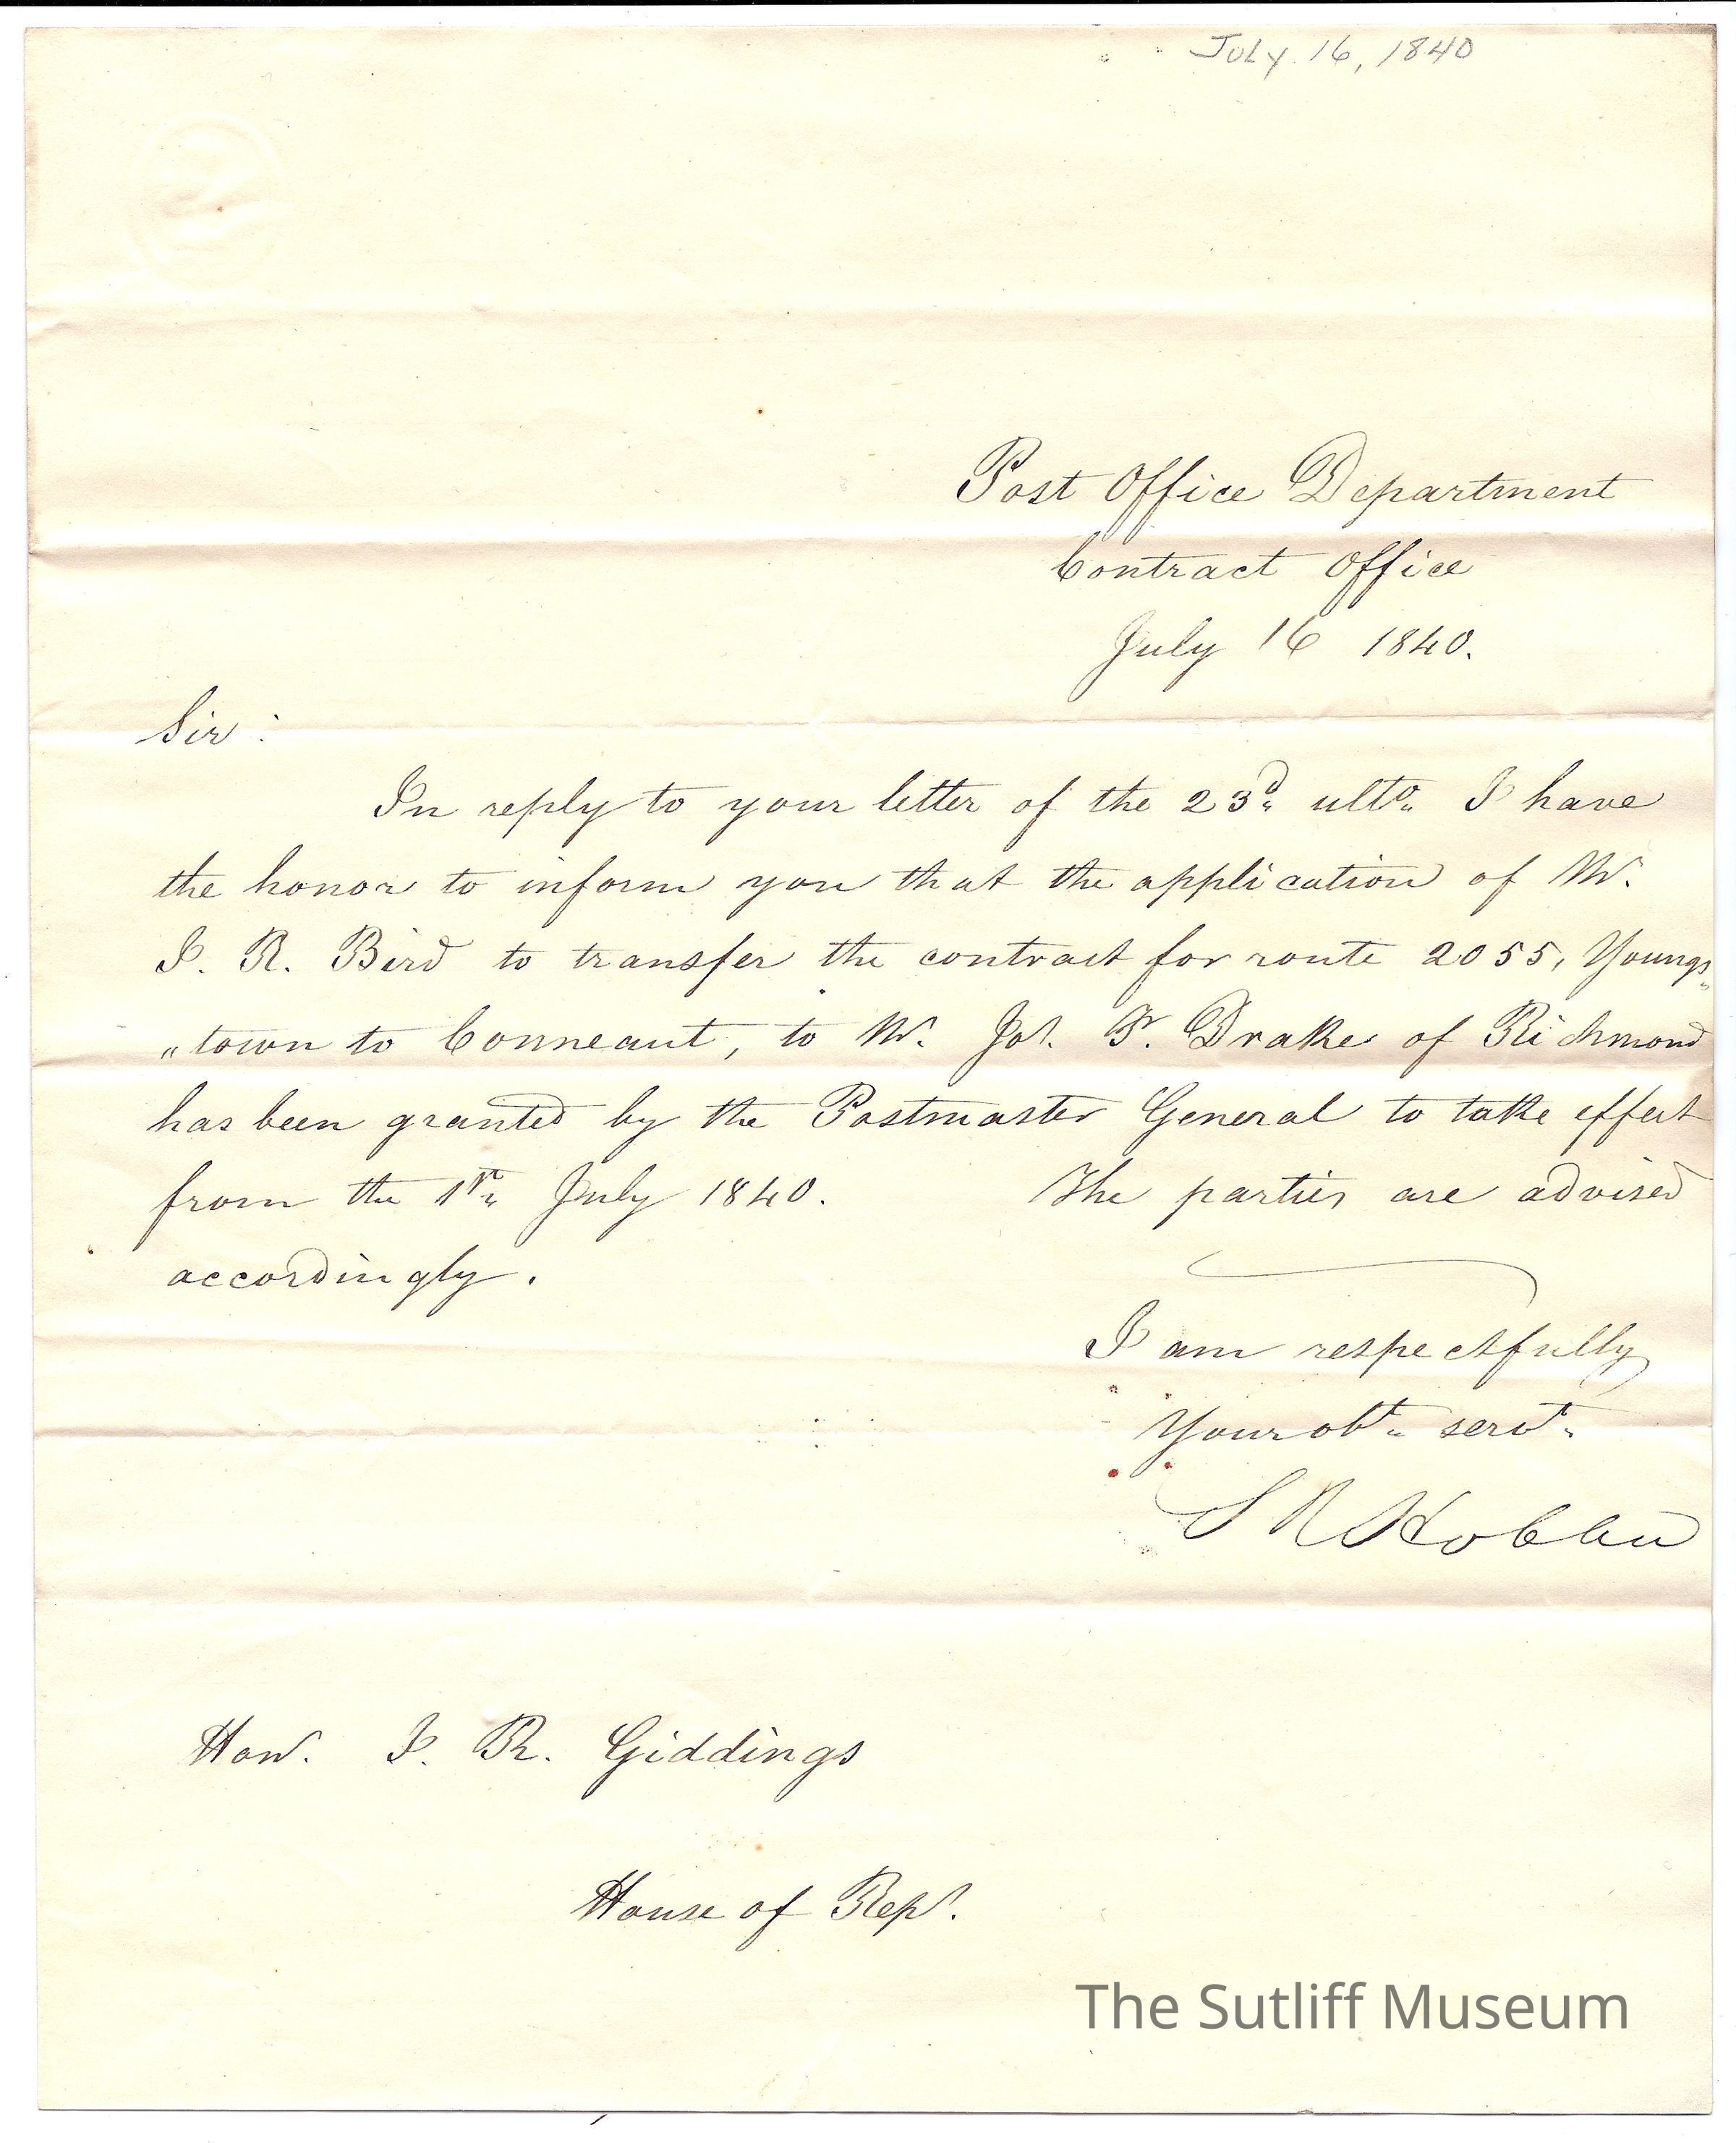 July 16, 1840
Post Office Department
Contract Office
July 16 1840.
Sir:
In reply to your letter of the 23d ulto I have
the honor to inform you that the application of Mr.
I. R. Bird to transfer the contract for route 2055, Youngs
"town to Conneaut, to Mr. Jos. F. Drake of Richmond
has been granted by the Postmaster General to take effect
from the 1st July 1840. The parties are advised
accordingly.
I am respectfully
Your obt servt
S R Hobbie
Hon. I. R. Giddings
House of Rep.
The Sutliff Museum